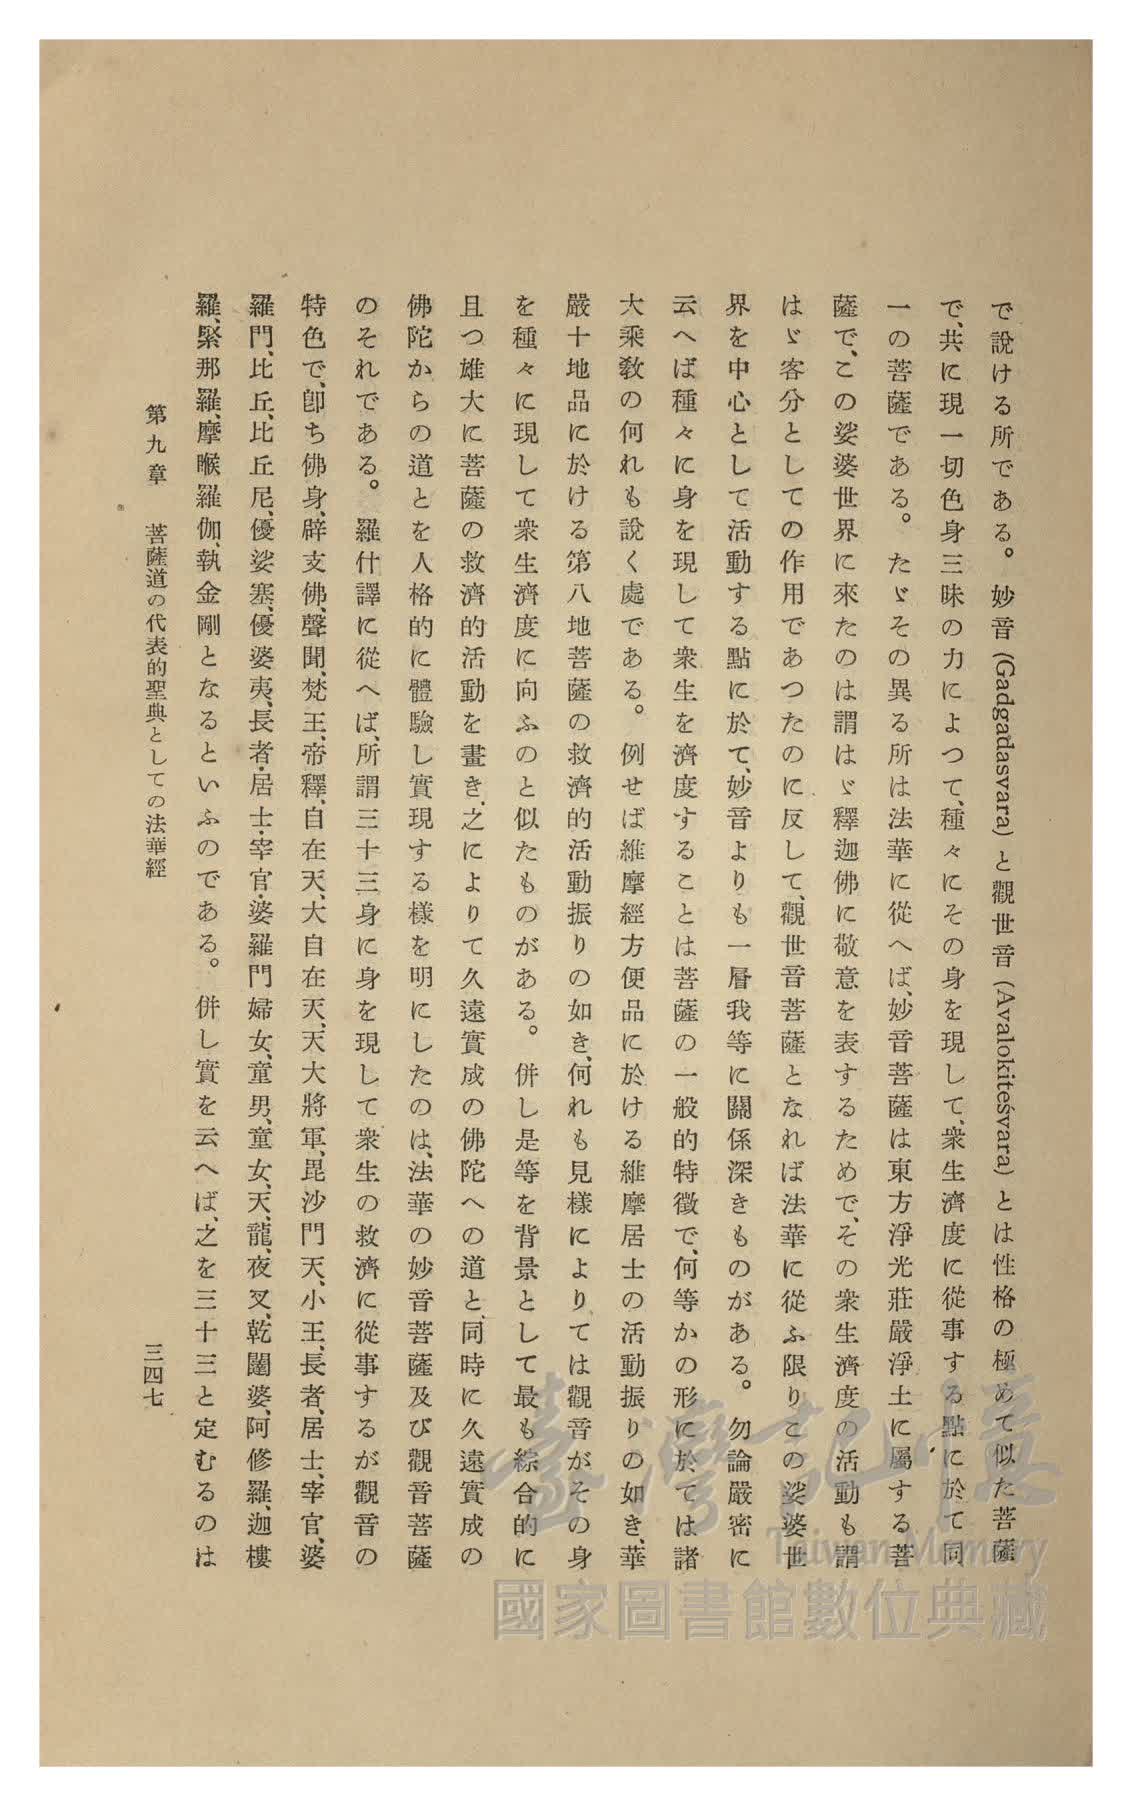 で說ける所である。妙音(Gadgadasvara)と觀世音(Avalokiteśvara)とは性格の極めて似た菩薩
で、共に現一切色身三昧の力によつて、種々にその身を現して、衆生濟度に從事する點に於て同
一の菩薩である。たゞその異る所は法華に從へば、妙音菩薩は東方淨光莊嚴淨土に屬する菩
薩で、この娑婆世界に來たのは謂はゞ釋迦佛に敬意を表するためで、その衆生濟度の活動も謂
はゞ客分としての作用であつたのに反して、觀世音菩薩となれば法華に從ふ限りこの娑婆世
界を中心として活動する點に於て、妙音よりも一層我等に關係深きものがある。勿論嚴密に
云へば種々に身を現して衆生を濟度することは菩薩の一般的特徵で、何等かの形に於ては諸
大乘敎の何れも說く處である。例せば維摩經方便品に於ける維摩居士の活動振りの如き、華
嚴十地品に於ける第八地菩薩の救濟的活動振りの如き、何れも見樣によりては觀音がその身
を種々に現して衆生濟度に向ふのと似たものがある。併し是等を背景として最も綜合的に
且つ雄大に菩薩の救濟的活動を畫き、之によりて久遠實成の佛陀への道と、同時に久遠實成の
佛陀からの道とを人格的に體驗し實現する樣を明にしたのは、法華の妙音菩薩及び觀音菩薩
のそれである。羅什譯に從へば、所謂三十三身に身を現して衆生の救濟に從事するが觀音の
特色で、卽ち佛身、辟支佛、聲聞、梵王、帝釋、自在天、大自在天、天大將軍、毘沙門天、小王、長者、居士、宰官、婆
羅門、比丘、比丘尼、優娑塞、優婆夷、長者・居士・宰官・婆羅門婦女、童男、童女、天、龍、夜叉、乾闥婆、阿修羅、迦樓
羅、緊那羅、摩睺羅伽、執金剛となるといふのである。併し實を云へば、之を三十三と定むるのは
第九章 菩薩道の代表的聖典としての法華經
三四七
臺灣記憶
Taiwan Memory
國家圖書館數位典藏